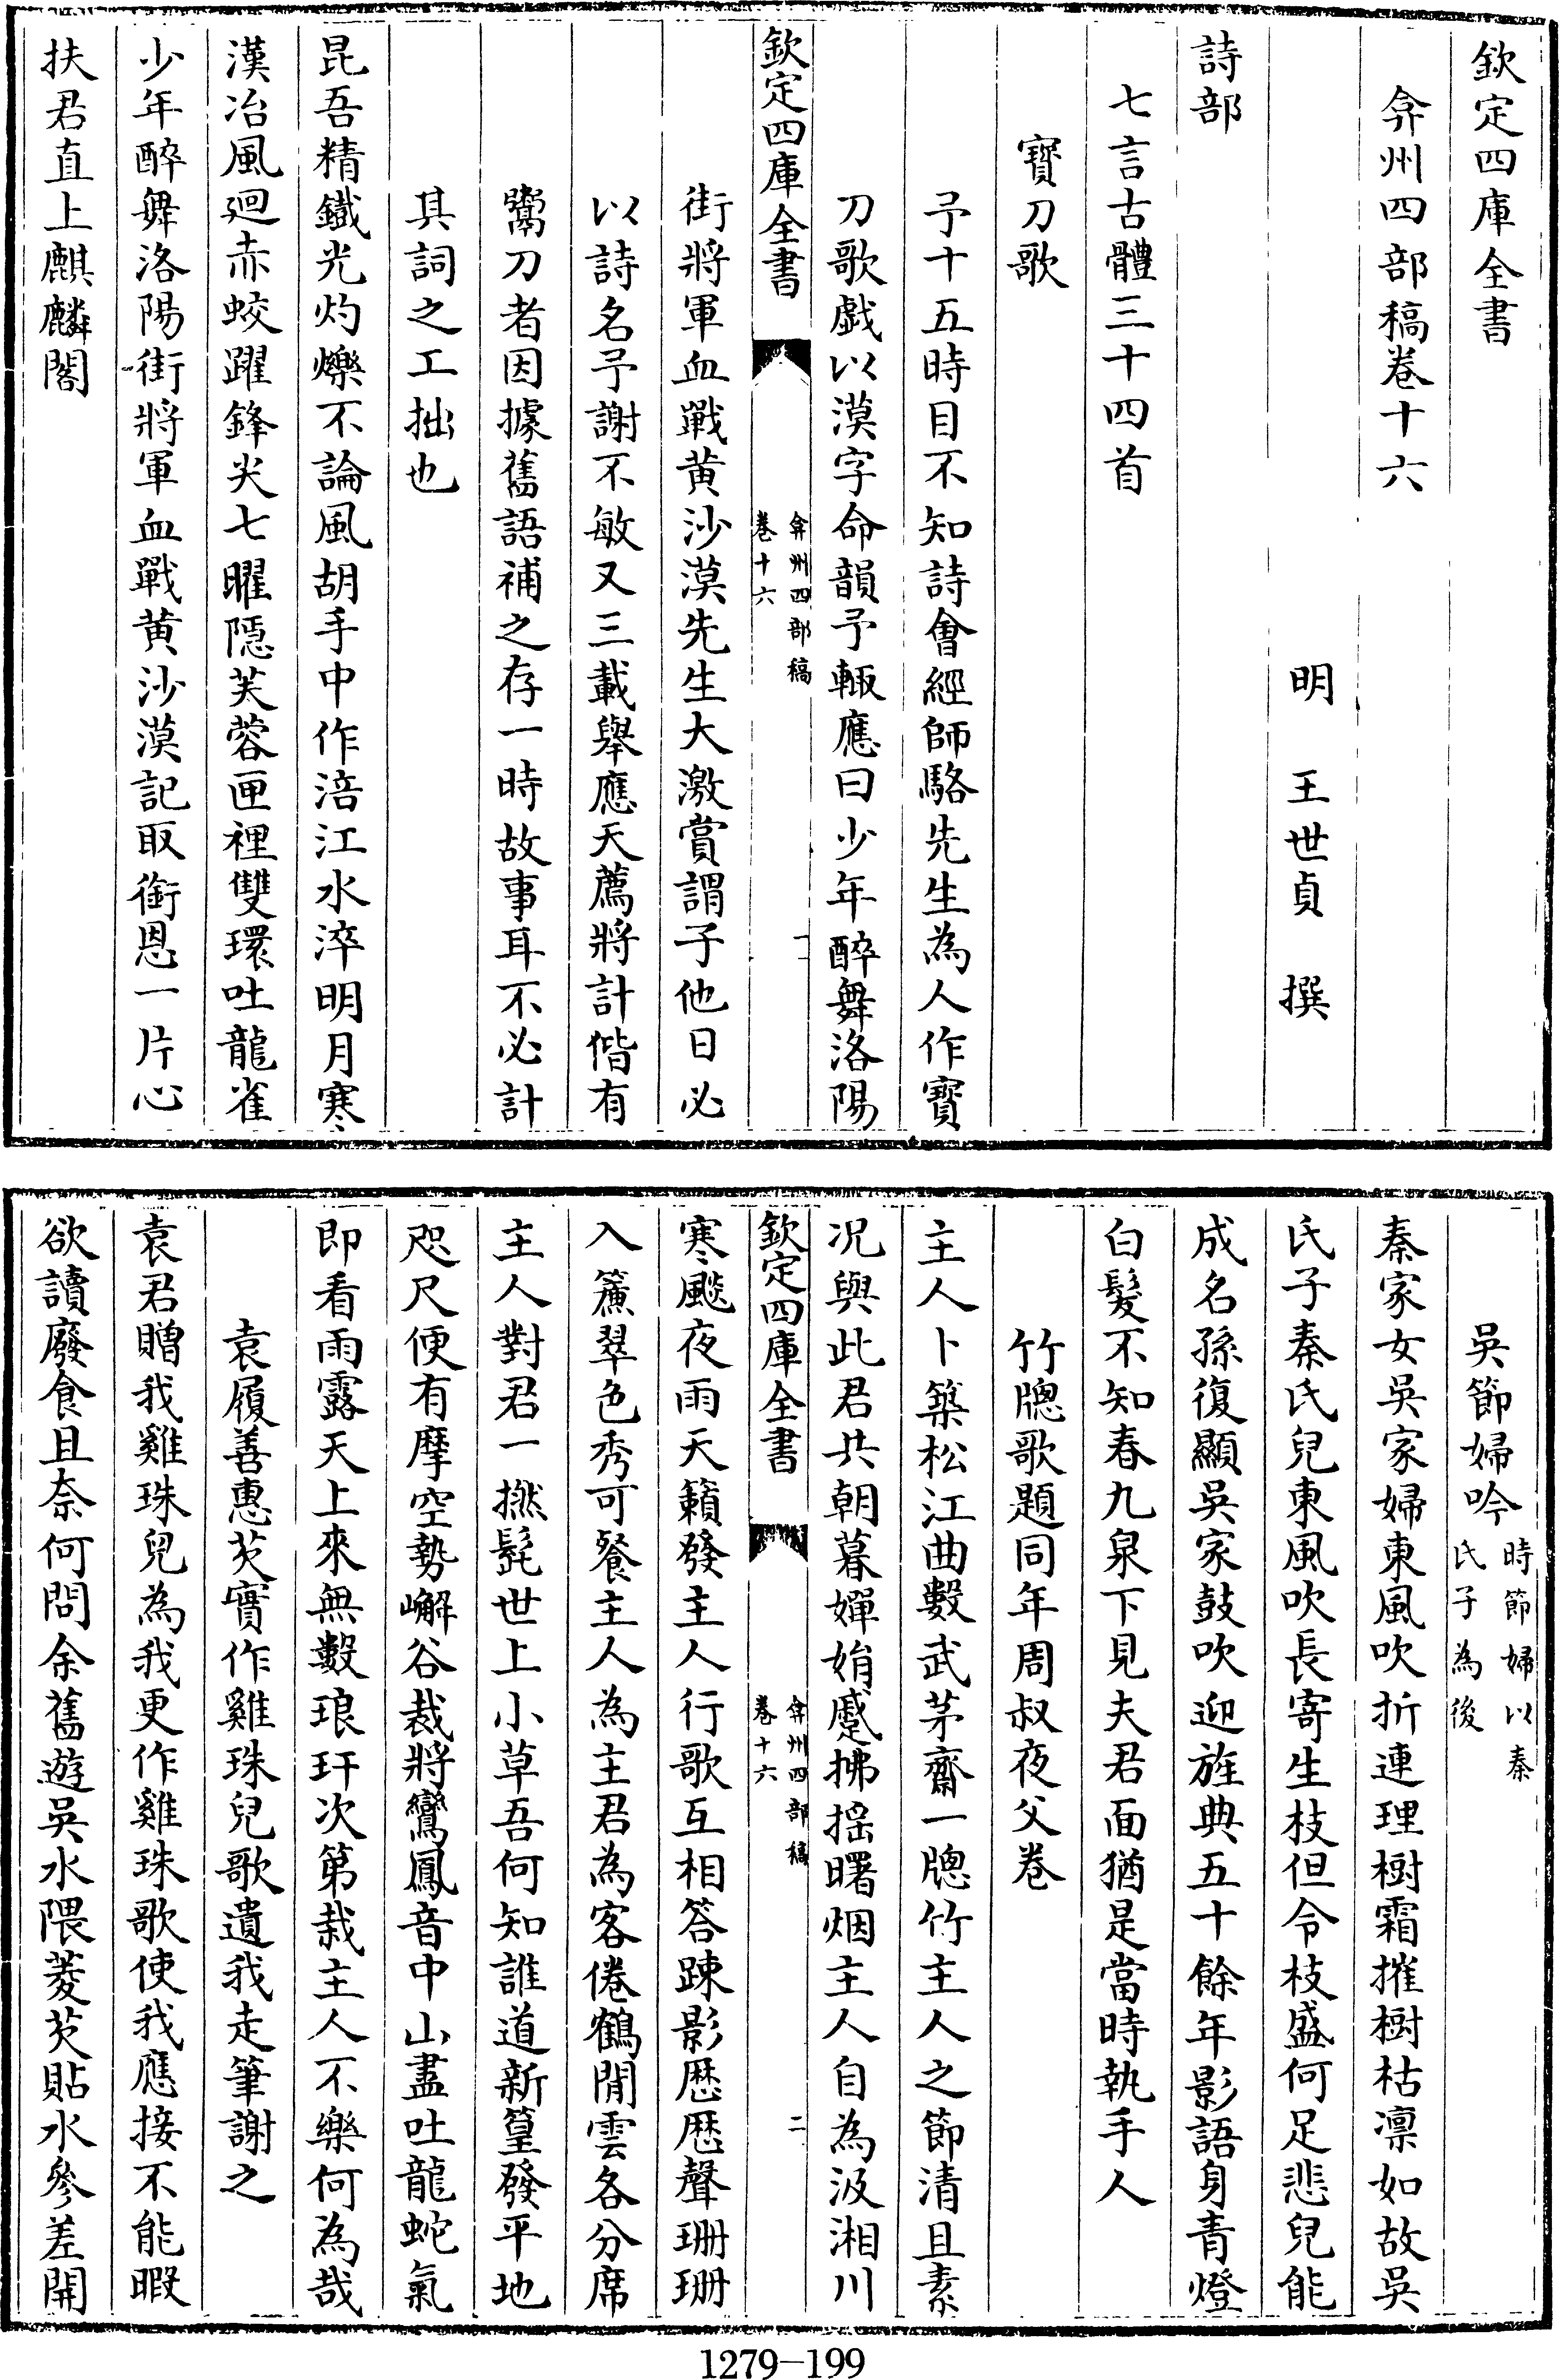 欽定四庫全書
弇州四部稿卷十六
明　王世貞　撰
詩部
七言古體三十四首
寶刀歌
予十五時目不知詩會經師駱先生為人作寶
刀歌戲以漠字命韻予輙應曰少年醉舞洛陽
欽定四庫全書
弇州四部稿
卷十六
一
街將軍血戰黄沙漠先生大激賞謂子他日必
以詩名予謝不敏又三載舉應天薦將計偕有
鬻刀者因據舊語補之存一時故事耳不必計
其詞之工拙也
昆吾精鐵光灼爍不論風胡手中作涪江水淬明月寒
漢冶風廻赤蛟躍鋒尖七曜隱芙蓉匣裡雙環吐龍雀
少年醉舞洛陽街將軍血戰黄沙漠記取銜恩一片心
扶君直上麒麟閣
吳節婦吟
時節婦以秦
氏子為後
秦家女吳家婦東風吹折連理樹霜摧樹枯凛如故吳
氏子秦氏兒東風吹長寄生枝但令枝盛何足悲兒能
成名孫復顯吳家鼓吹迎旌典五十餘年影語身青燈
白髮不知春九泉下見夫君面猶是當時執手人
竹牕歌題同年周叔夜父卷
主人卜築松江曲數武茅齋一牕竹主人之節清且素
况與此君共朝暮嬋娟蹙拂揺曙烟主人自為汲湘川
欽定四庫全書
弇州四部稿
卷十六
二
寒颷夜雨天籟發主人行歌互相答踈影厯厯聲珊珊
入簾翠色秀可餐主人為主君為客倦鶴閒雲各分席
主人對君一撚髭世上小草吾何知誰道新篁發平地
咫尺便有摩空勢嶰谷裁將鸞鳳音中山盡吐龍蛇氣
即看雨露天上來無數琅玕次第栽主人不樂何為哉
袁履善惠芡實作雞珠兒歌遺我走筆謝之
袁君贈我雞珠兒為我更作雞珠歌使我應接不能暇
欲讀廢食且奈何問余舊遊吳水隈菱芡貼水參差開
1279—199